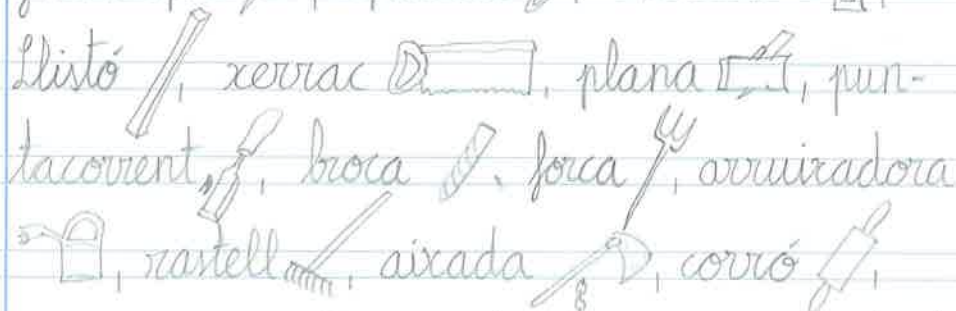 Llistó, xerrac, plana, pun-
tacorrent, broca, forca, arruixadora
, rastell, aixada, corró,